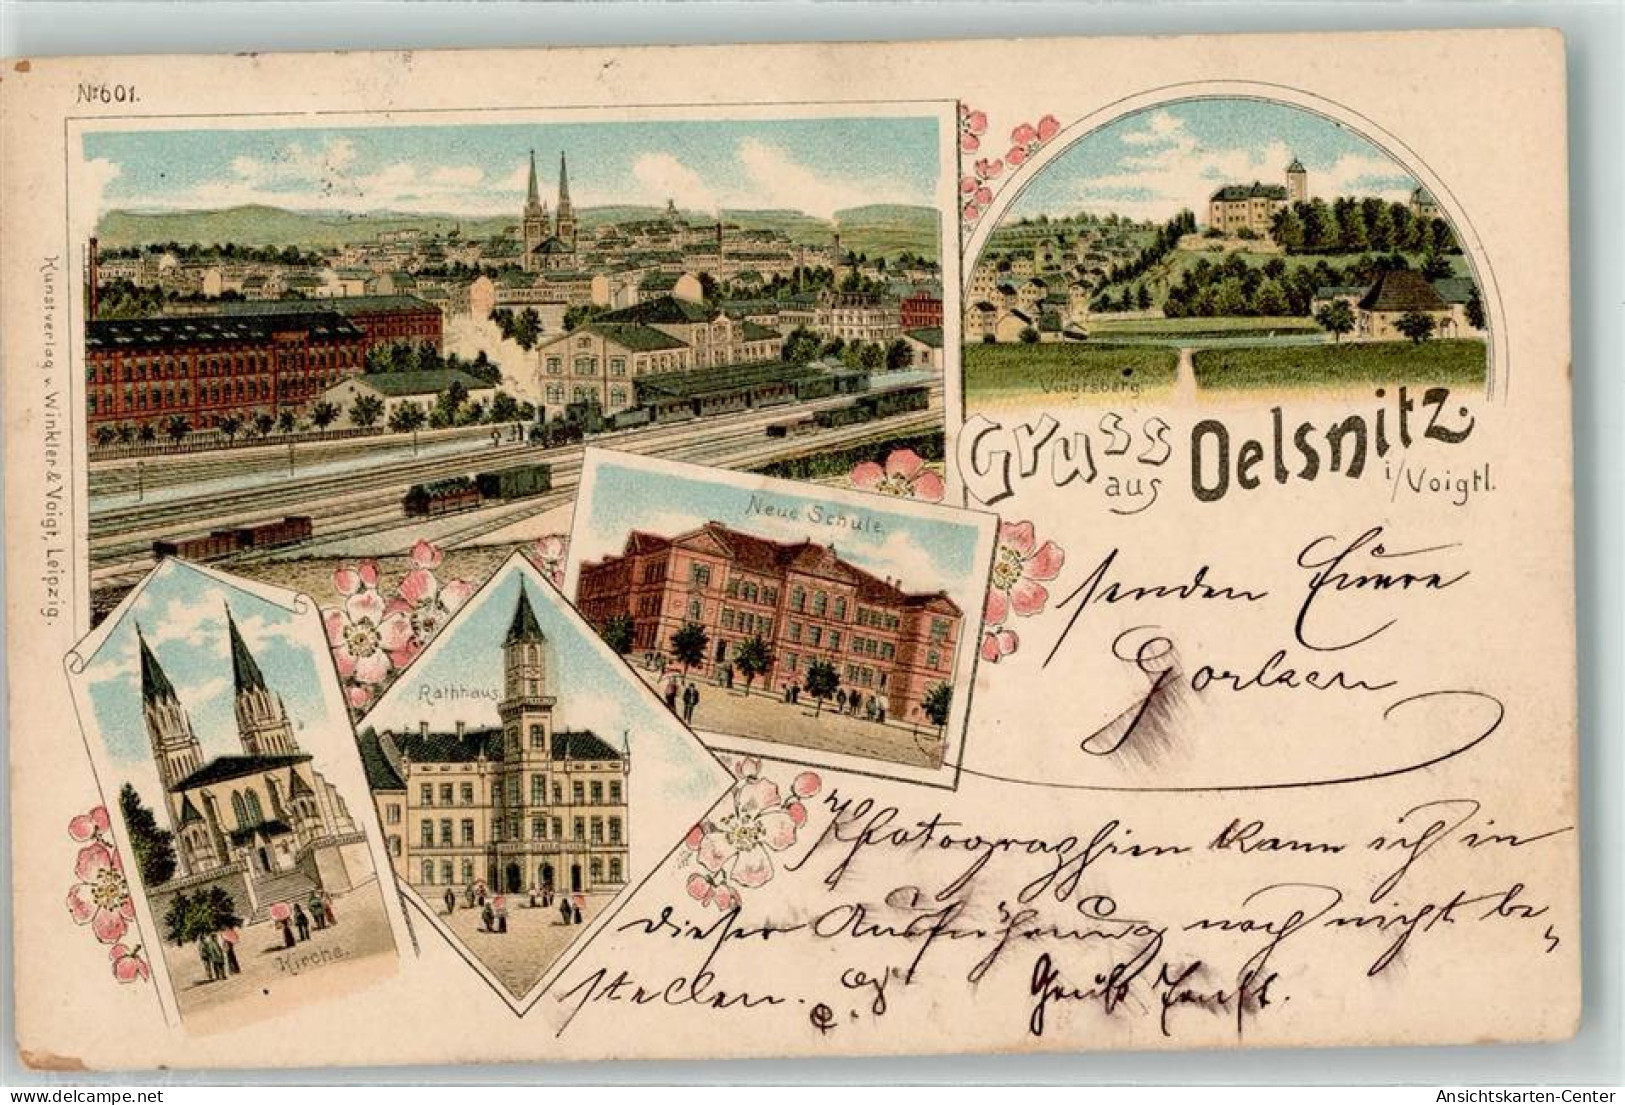 Nr 601.
Kunstverlag v. Winkler & Voigt, Leipzig.
Voigtsberg.
Gruss
aus
Oelsnitz
i/Voigtl.
Neue Schule.
Rathhaus.
Kirche.
senden
Photographien kann ich in
dieser Ausführung noch nicht be„
stellen.
Gruß
Ansichtskarten-Center